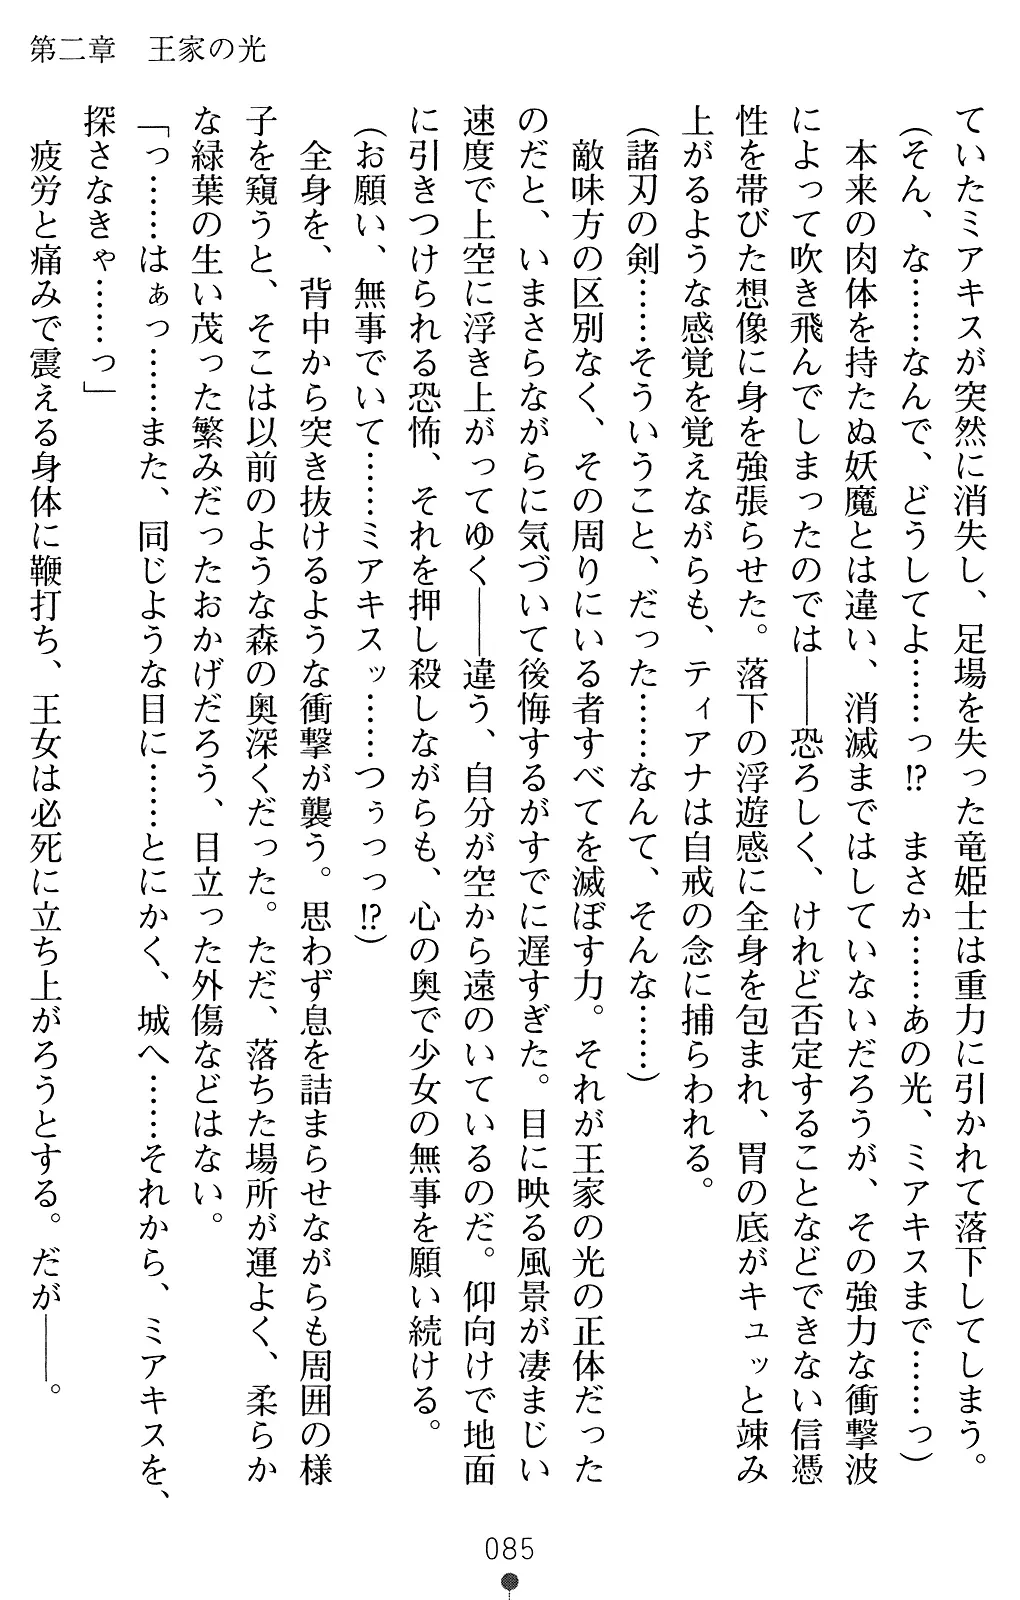 第二章　王家の光
ていたミアキスが突然に消失し、足場を失った竜姫士は重力に引かれて落下してしまう。
（そん、な……なんで、どうしてよ……っ!?　まさか……あの光、ミアキスまで……っ）
　本来の肉体を持たぬ妖魔とは違い、消滅まではしていないだろうが、その強力な衝撃波
によって吹き飛んでしまったのでは――恐ろしく、けれど否定することなどできない信憑
性を帯びた想像に身を強張らせた。落下の浮遊感に全身を包まれ、胃の底がキュッと竦み
上がるような感覚を覚えながらも、ティアナは自戒の念に捕らわれる。
（諸刃の剣……そういうこと、だった……なんて、そんな……）
　敵味方の区別なく、その周りにいる者すべてを滅ぼす力。それが王家の光の正体だった
のだと、いまさらながらに気づいて後悔するがすでに遅すぎた。目に映る風景が凄まじい
速度で上空に浮き上がってゆく――違う、自分が空から遠のいているのだ。仰向けで地面
に引きつけられる恐怖、それを押し殺しながらも、心の奥で少女の無事を願い続ける。
（お願い、無事でいて……ミアキスッ……つぅっっ!?）
　全身を、背中から突き抜けるような衝撃が襲う。思わず息を詰まらせながらも周囲の様
子を窺うと、そこは以前のような森の奥深くだった。ただ、落ちた場所が運よく、柔らか
な緑葉の生い茂った繁みだったおかげだろう、目立った外傷などはない。
「っ……はぁっ……また、同じような目に……とにかく、城へ……それから、ミアキスを、
探さなきゃ……っ」
　疲労と痛みで震える身体に鞭打ち、王女は必死に立ち上がろうとする。だが――。
085